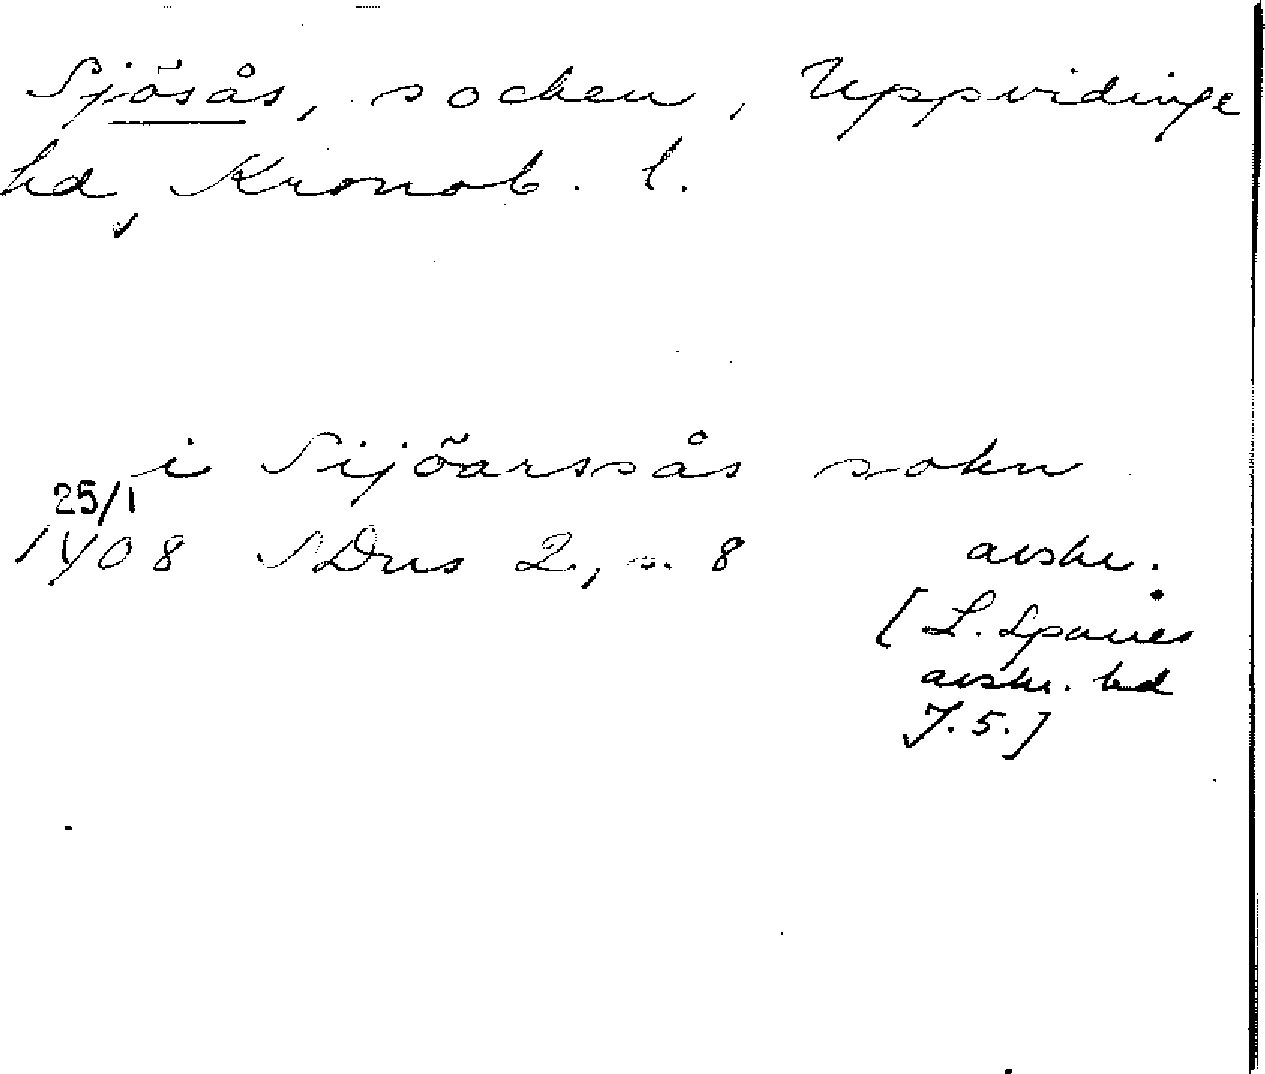 Sjösås, socken, Uppvidinge
hd, Kronob. l.
i Sijöarssås sokn
25/1
1408 SDns 2, s. 8 avskr.
[L. Sparres
avskr. bd
J.5.]